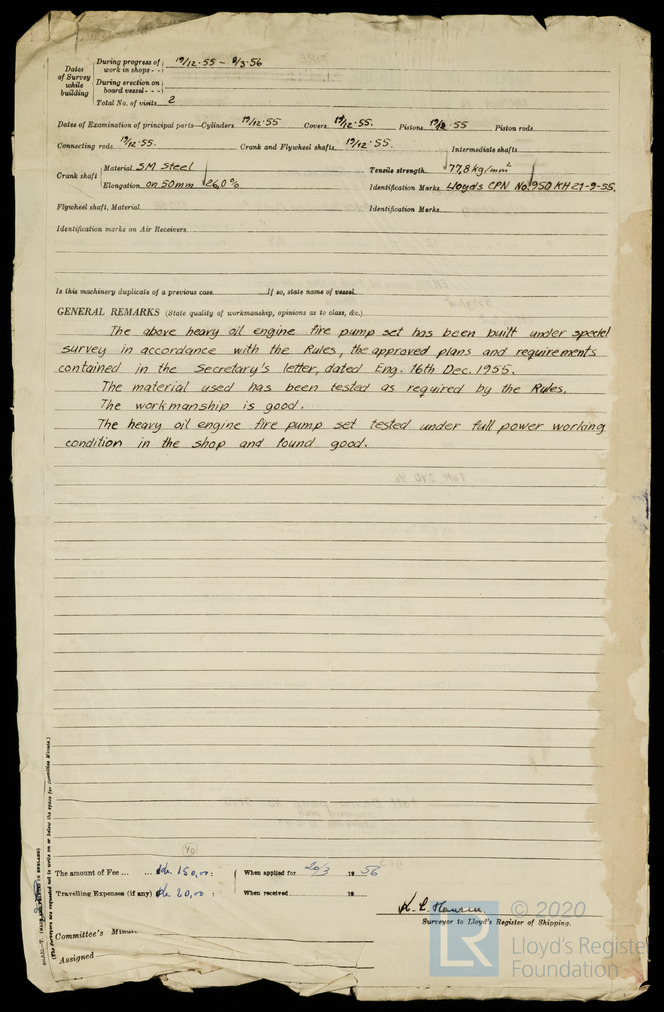 Dates of Survey while building
During progress of work in shops - - 19/12·55 – 8/3·56
During erection on board vessel - - -
Total No. of visits 2
Dates of Examination of principal parts—Cylinders 19/12·55 Covers 19/12·55. Pistons 19/12·55 Piston rods
Connecting rods 19/12·55. Crank and Flywheel shafts 19/12·55. Intermediate shafts
Crank shaft Material SM Steel Tensile strength 77,8 kg/mm²
Elongation on 50mm 26,0% Identification Marks Lloyds CPN No. 950 KH 21-9-55.
Flywheel shaft, Material Identification Marks
Identification marks on Air Receivers
Is this machinery duplicate of a previous case If so, state name of vessel
GENERAL REMARKS (State quality of workmanship, opinions as to class, &c.)
The above heavy oil engine fire pump set has been built under special
survey in accordance with the Rules, the approved plans and requirements
contained in the Secretary's letter, dated Eng. 16th Dec. 1955.
The material used has been tested as required by the Rules.
The workmanship is good.
The heavy oil engine fire pump set tested under full power working
condition in the shop and found good.
The amount of Fee ... ... Kr. 150,00 : When applied for 20/3 19 56
Travelling Expenses (if any) Kr. 20,00 : When received 19
K. L. Hansen
Surveyor to Lloyd's Register of Shipping.
Committee's Minute
Assigned
(MADE AND PRINTED IN ENGLAND)
(The Surveyors are requested not to write on or below the space for Committee Minute.)
LR
© 2020
Lloyd's Register
Foundation